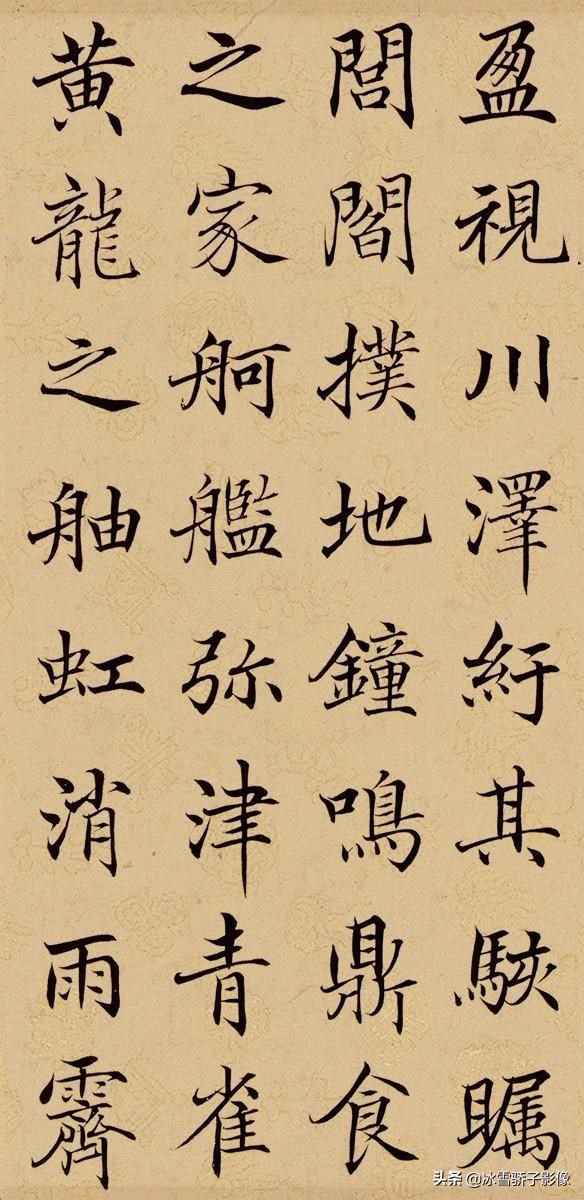 盈視川澤紆其駭矚
閭閻撲地鐘鳴鼎食
之家舸艦弥津青雀
黄龍之舳虹消雨霽
头条 @冰雪骄子影像